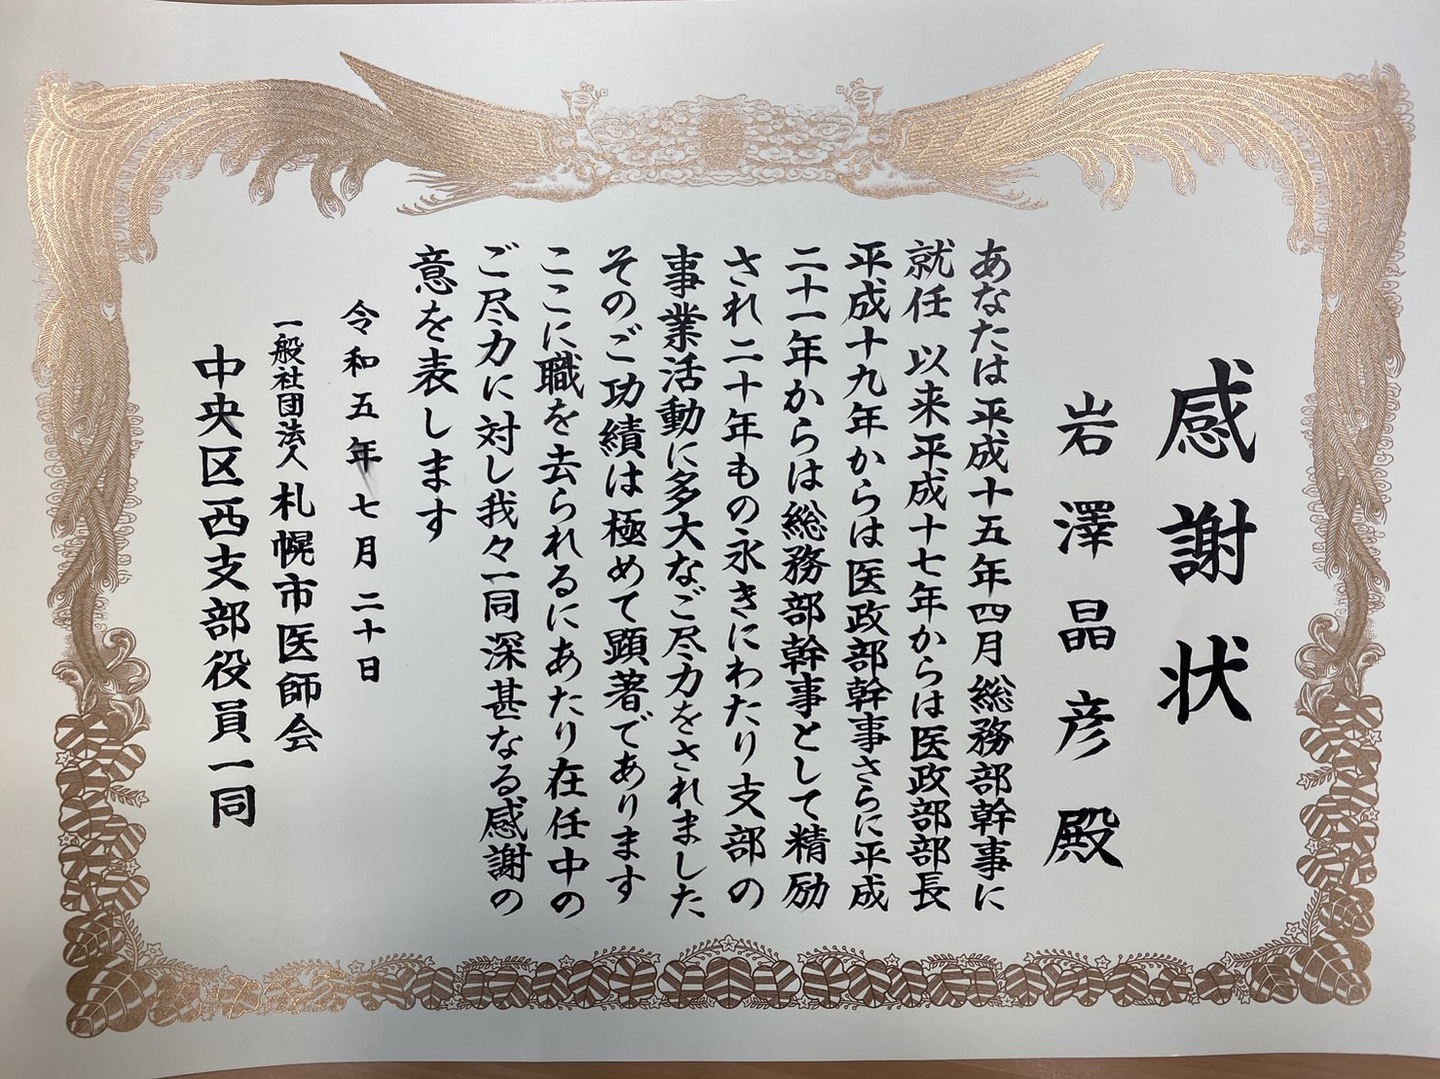 感謝状
岩澤晶彦殿
あなたは平成十五年四月総務部幹事に
就任 以来平成十七年からは医政部部長
平成十九年からは医政部幹事さらに平成
二十一年からは総務部幹事として精励
され二十年もの永きにわたり支部の
事業活動に多大なご尽力をされました
そのご功績は極めて顕著であります
ここに職を去られるにあたり在任中の
ご尽力に対し我々一同深甚なる感謝の
意を表します
令和五年七月二十日
一般社団法人札幌市医師会
中央区西支部役員一同